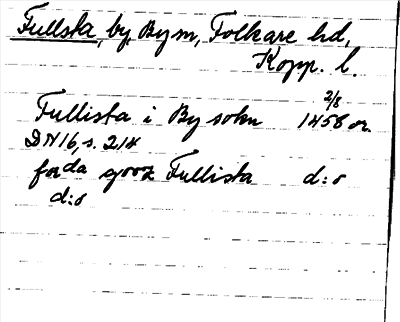 Fullsta, by, By sn, Folkare hd,
Kopp. l.
Fullista i By sokn 1458 2/8 or.
DN 16, s. 214
forda Fullista d:o
d:o